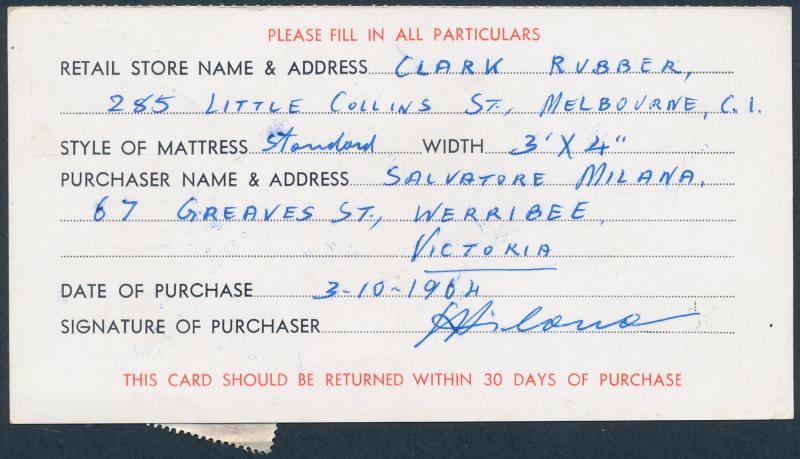 PLEASE FILL IN ALL PARTICULARS
RETAIL STORE NAME & ADDRESS CLARK RUBBER,
285 LITTLE COLLINS ST., MELBOURNE, C.1.
STYLE OF MATTRESS Standard WIDTH 3' X 4"
PURCHASER NAME & ADDRESS SALVATORE MILANA.
67 GREAVES ST., WERRIBEE,
VICTORIA
DATE OF PURCHASE 3-10-1964
SIGNATURE OF PURCHASER SMilana
THIS CARD SHOULD BE RETURNED WITHIN 30 DAYS OF PURCHASE